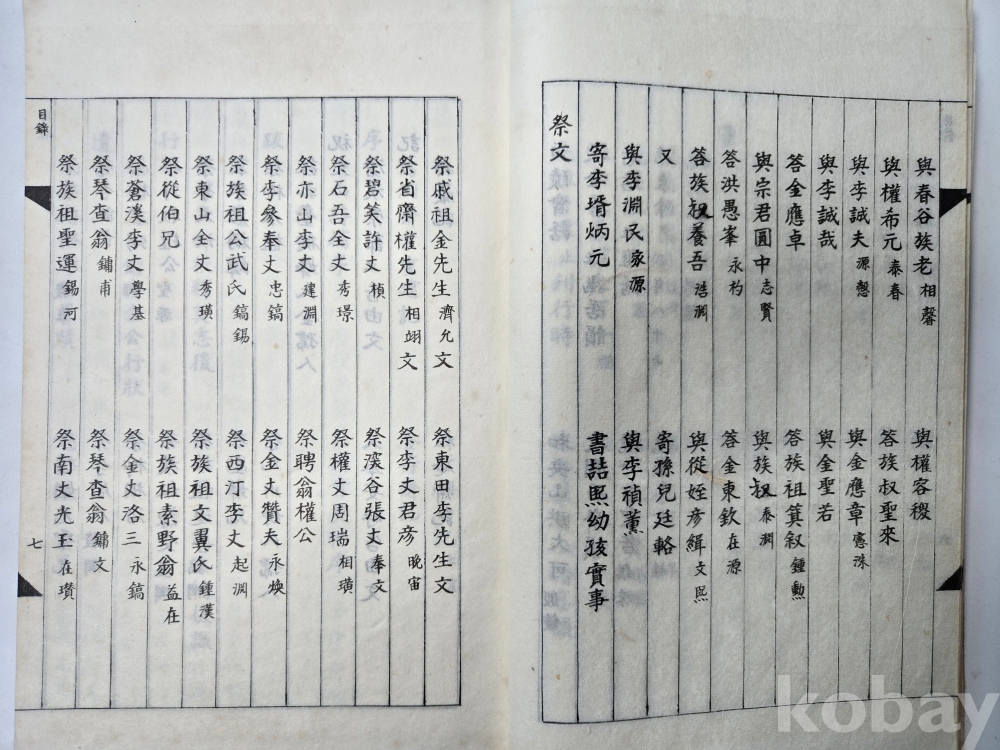 與春谷族老 相馨 與權容稷
與權希元 泰春 答族叔聖來
與李誠夫 源慤 與金應章 憲洙
與李誠哉 與金聖若
答金應卓 答族祖箕叙 鍾勳
與宗君圓中 志賢 與族叔 泰淵
答洪愚峯 永杓 答金東欽 在源
答族叔養吾 浩淵 與從姪彦緝 文熙
又 寄孫兒廷輅
與李淵民 家源 與李禎薰
寄李壻炳元 書喆熙幼孩實事
祭文
祭戚祖金先生 濟允 文 祭東田李先生文
祭省齋權先生 相翊 文 祭李丈君彦 晚宙
祭碧笑許丈 楨 祭溪谷張丈 奉文
祭石吾金丈 秀璟 祭權丈周瑞 相璜
祭亦山李丈 建淵 祭聘翁權公
祭李參奉丈 忠鎬 祭金丈贊夫 永煥
祭族祖公武氏 鎬錫 祭西汀李丈 起淵
祭東山金丈 秀瑛 祭族祖文翼氏 鍾漢
祭從伯兄 祭族祖素野翁 益在
祭蒼漢李丈 學基 祭金丈洛三 永鎬
祭琴查翁 鏞甫 祭琴查翁 鏞文
祭族祖聖運 錫河 祭南丈光玉 在瓚
目錄
七
kobay